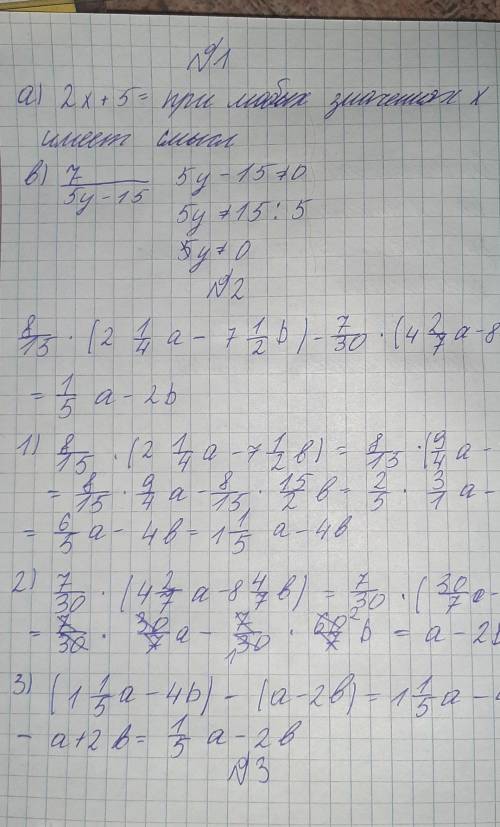 №1
а) 2x+5 = при любых значениях x
имеет смысл
в) 7/(5y-15) 5y-15≠0
5y≠15:5
5y≠0
№2
8/15 · (2 1/4 a - 7 1/2 b) - 7/30 · (4 2/7 a - 8
= 1/5 a - 2b
1) 8/15 · (2 1/4 a - 7 1/2 b) = 8/15 · (9/4 a -
= 8/15 · 9/4 a - 8/15 · 15/2 b = 2/5 · 3/1 a -
= 6/5 a - 4b = 1 1/5 a - 4b
2) 7/30 · (4 2/7 a - 8 4/7 b) = 7/30 · (30/7 a -
= 7/30 · 30/7 a - 7/30 · 60/7 b = a - 2b
3) (1 1/5 a - 4b) - (a - 2b) = 1 1/5 a -
- a + 2b = 1/5 a - 2b
№3